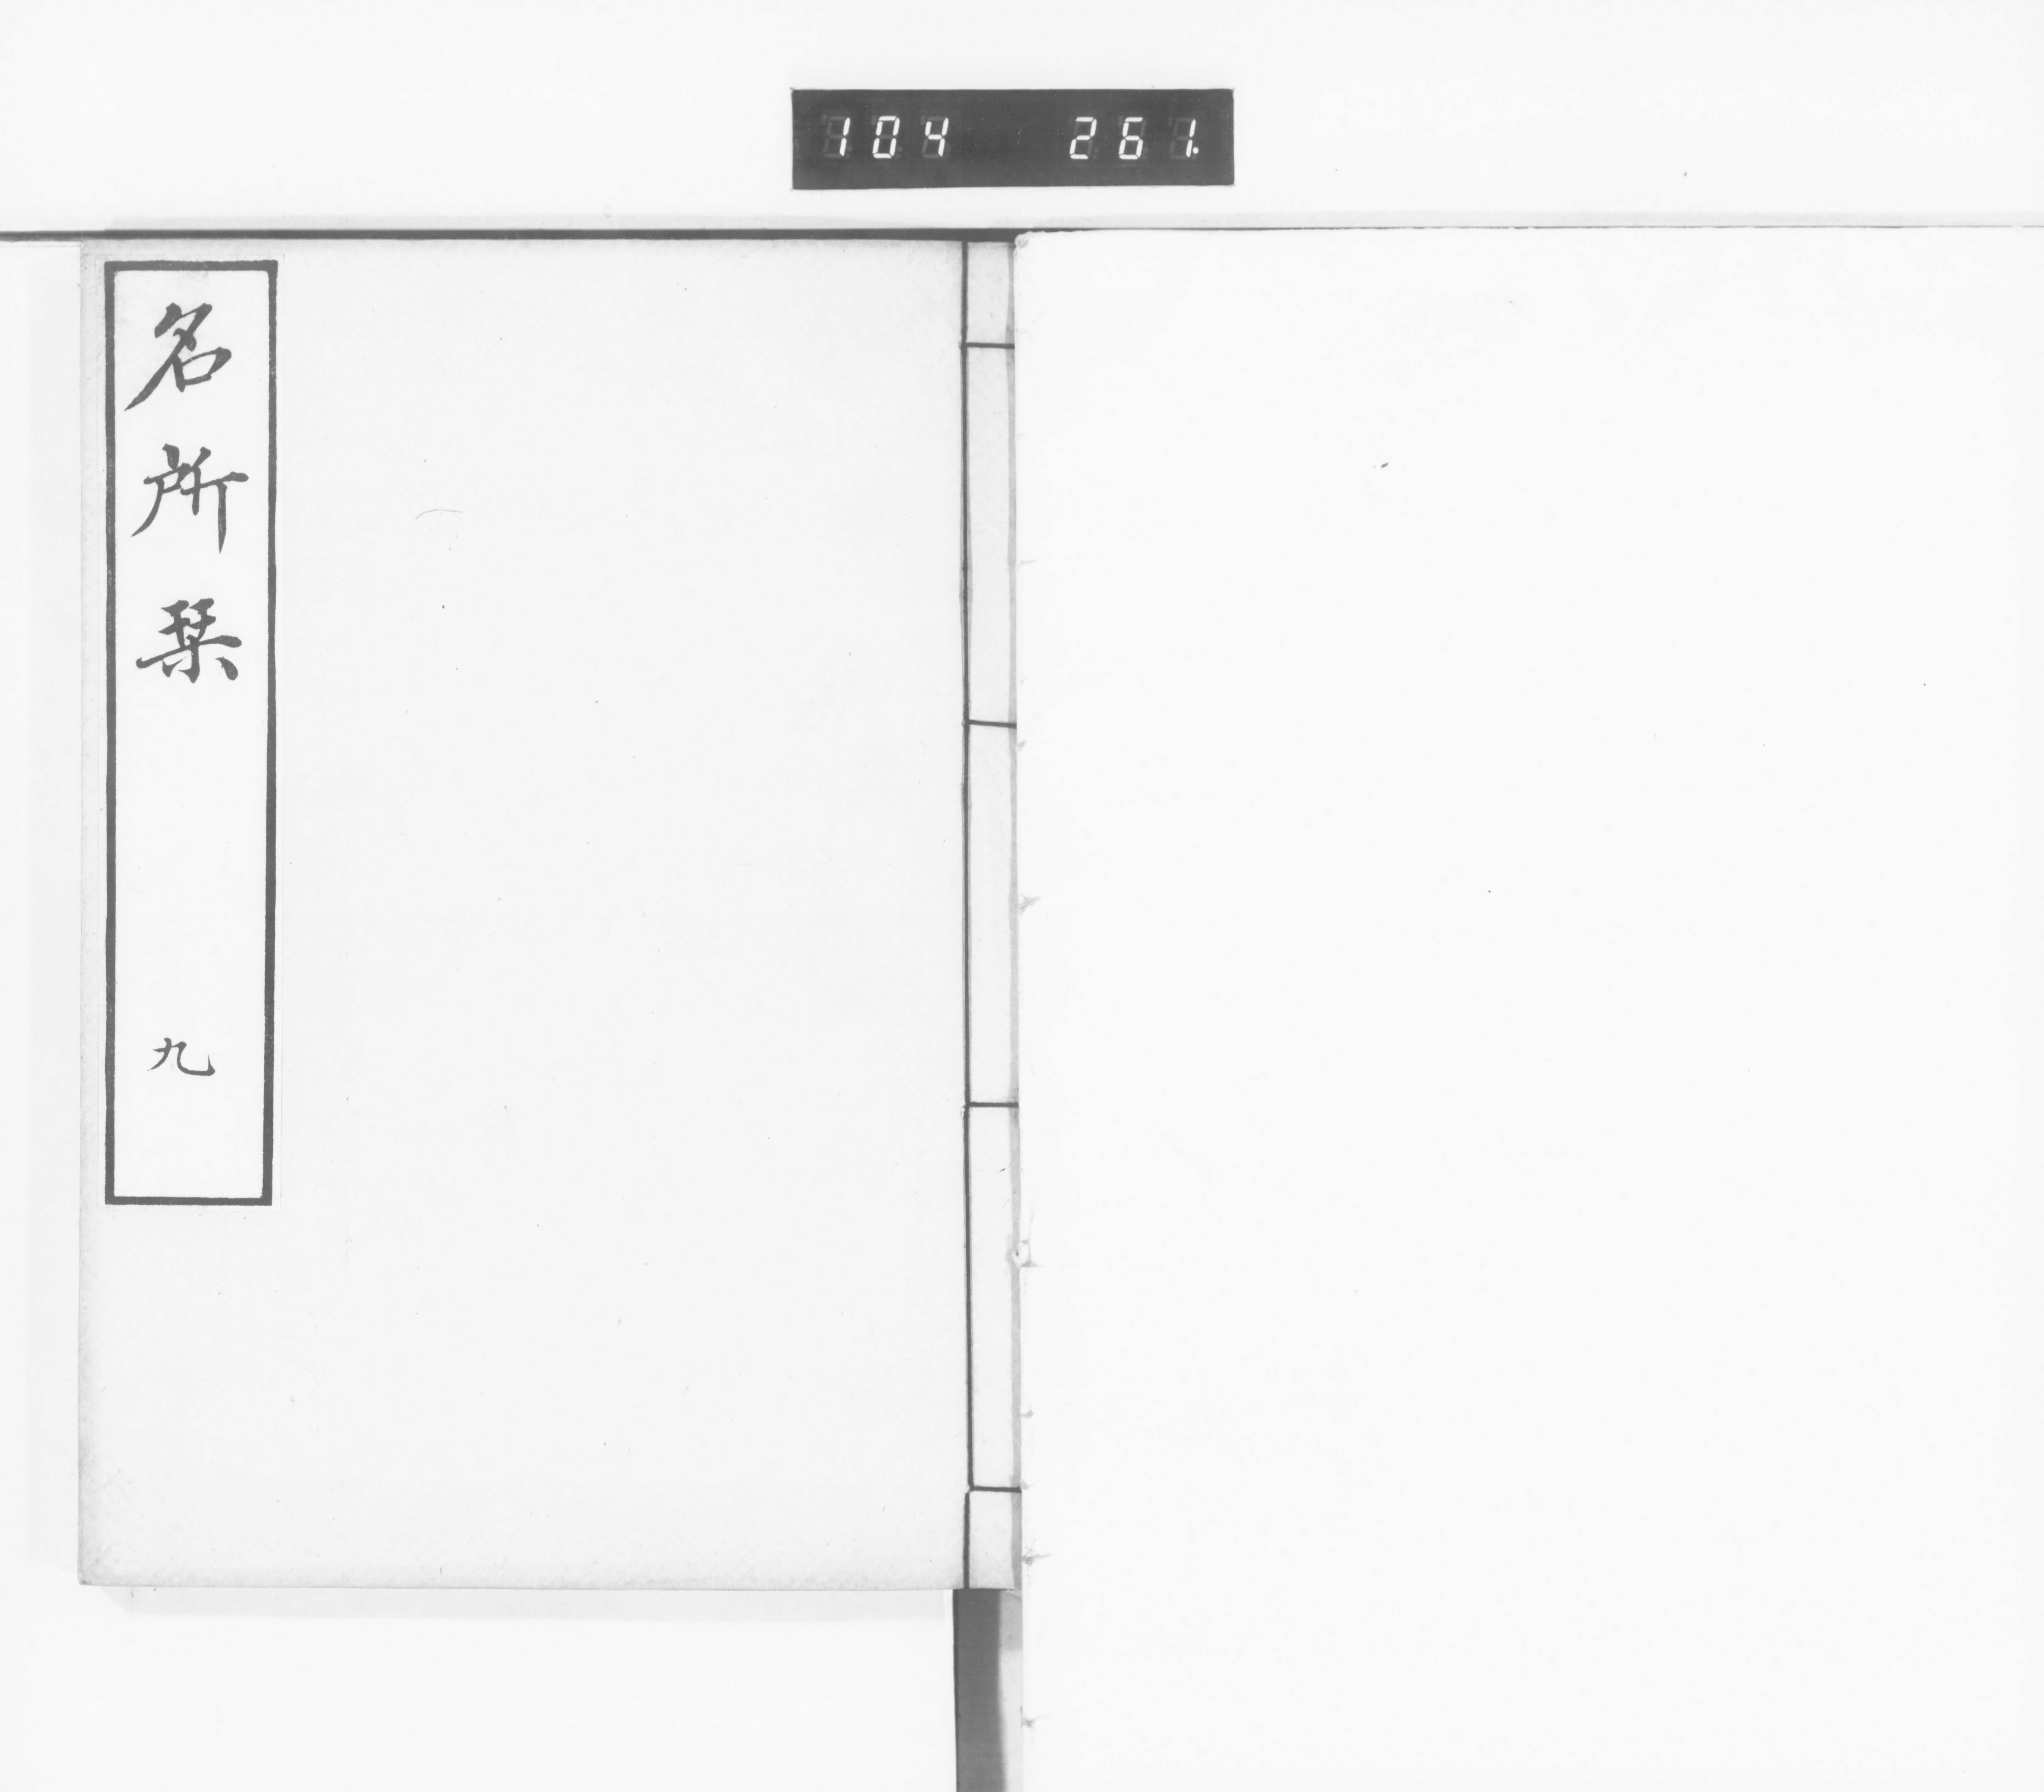 104 261.
名所栞
九